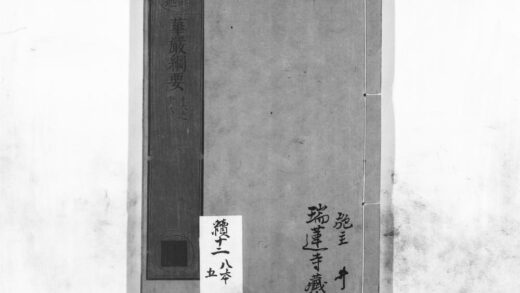 華嚴綱要
施主
瑞蓮寺藏
續十二
八本
五